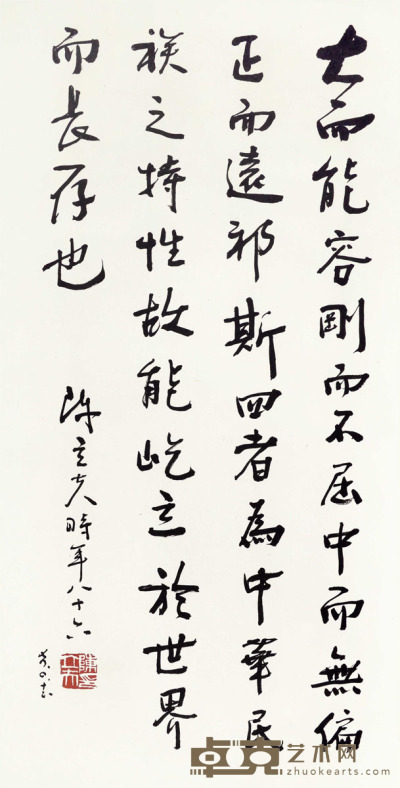 大而能容剛而不屈中而無偏
正而遠邪斯四者為中華民
族之特性故能屹立於世界
而長存也
陳立夫時年八十六
卓克艺术网
zhuokearts.com